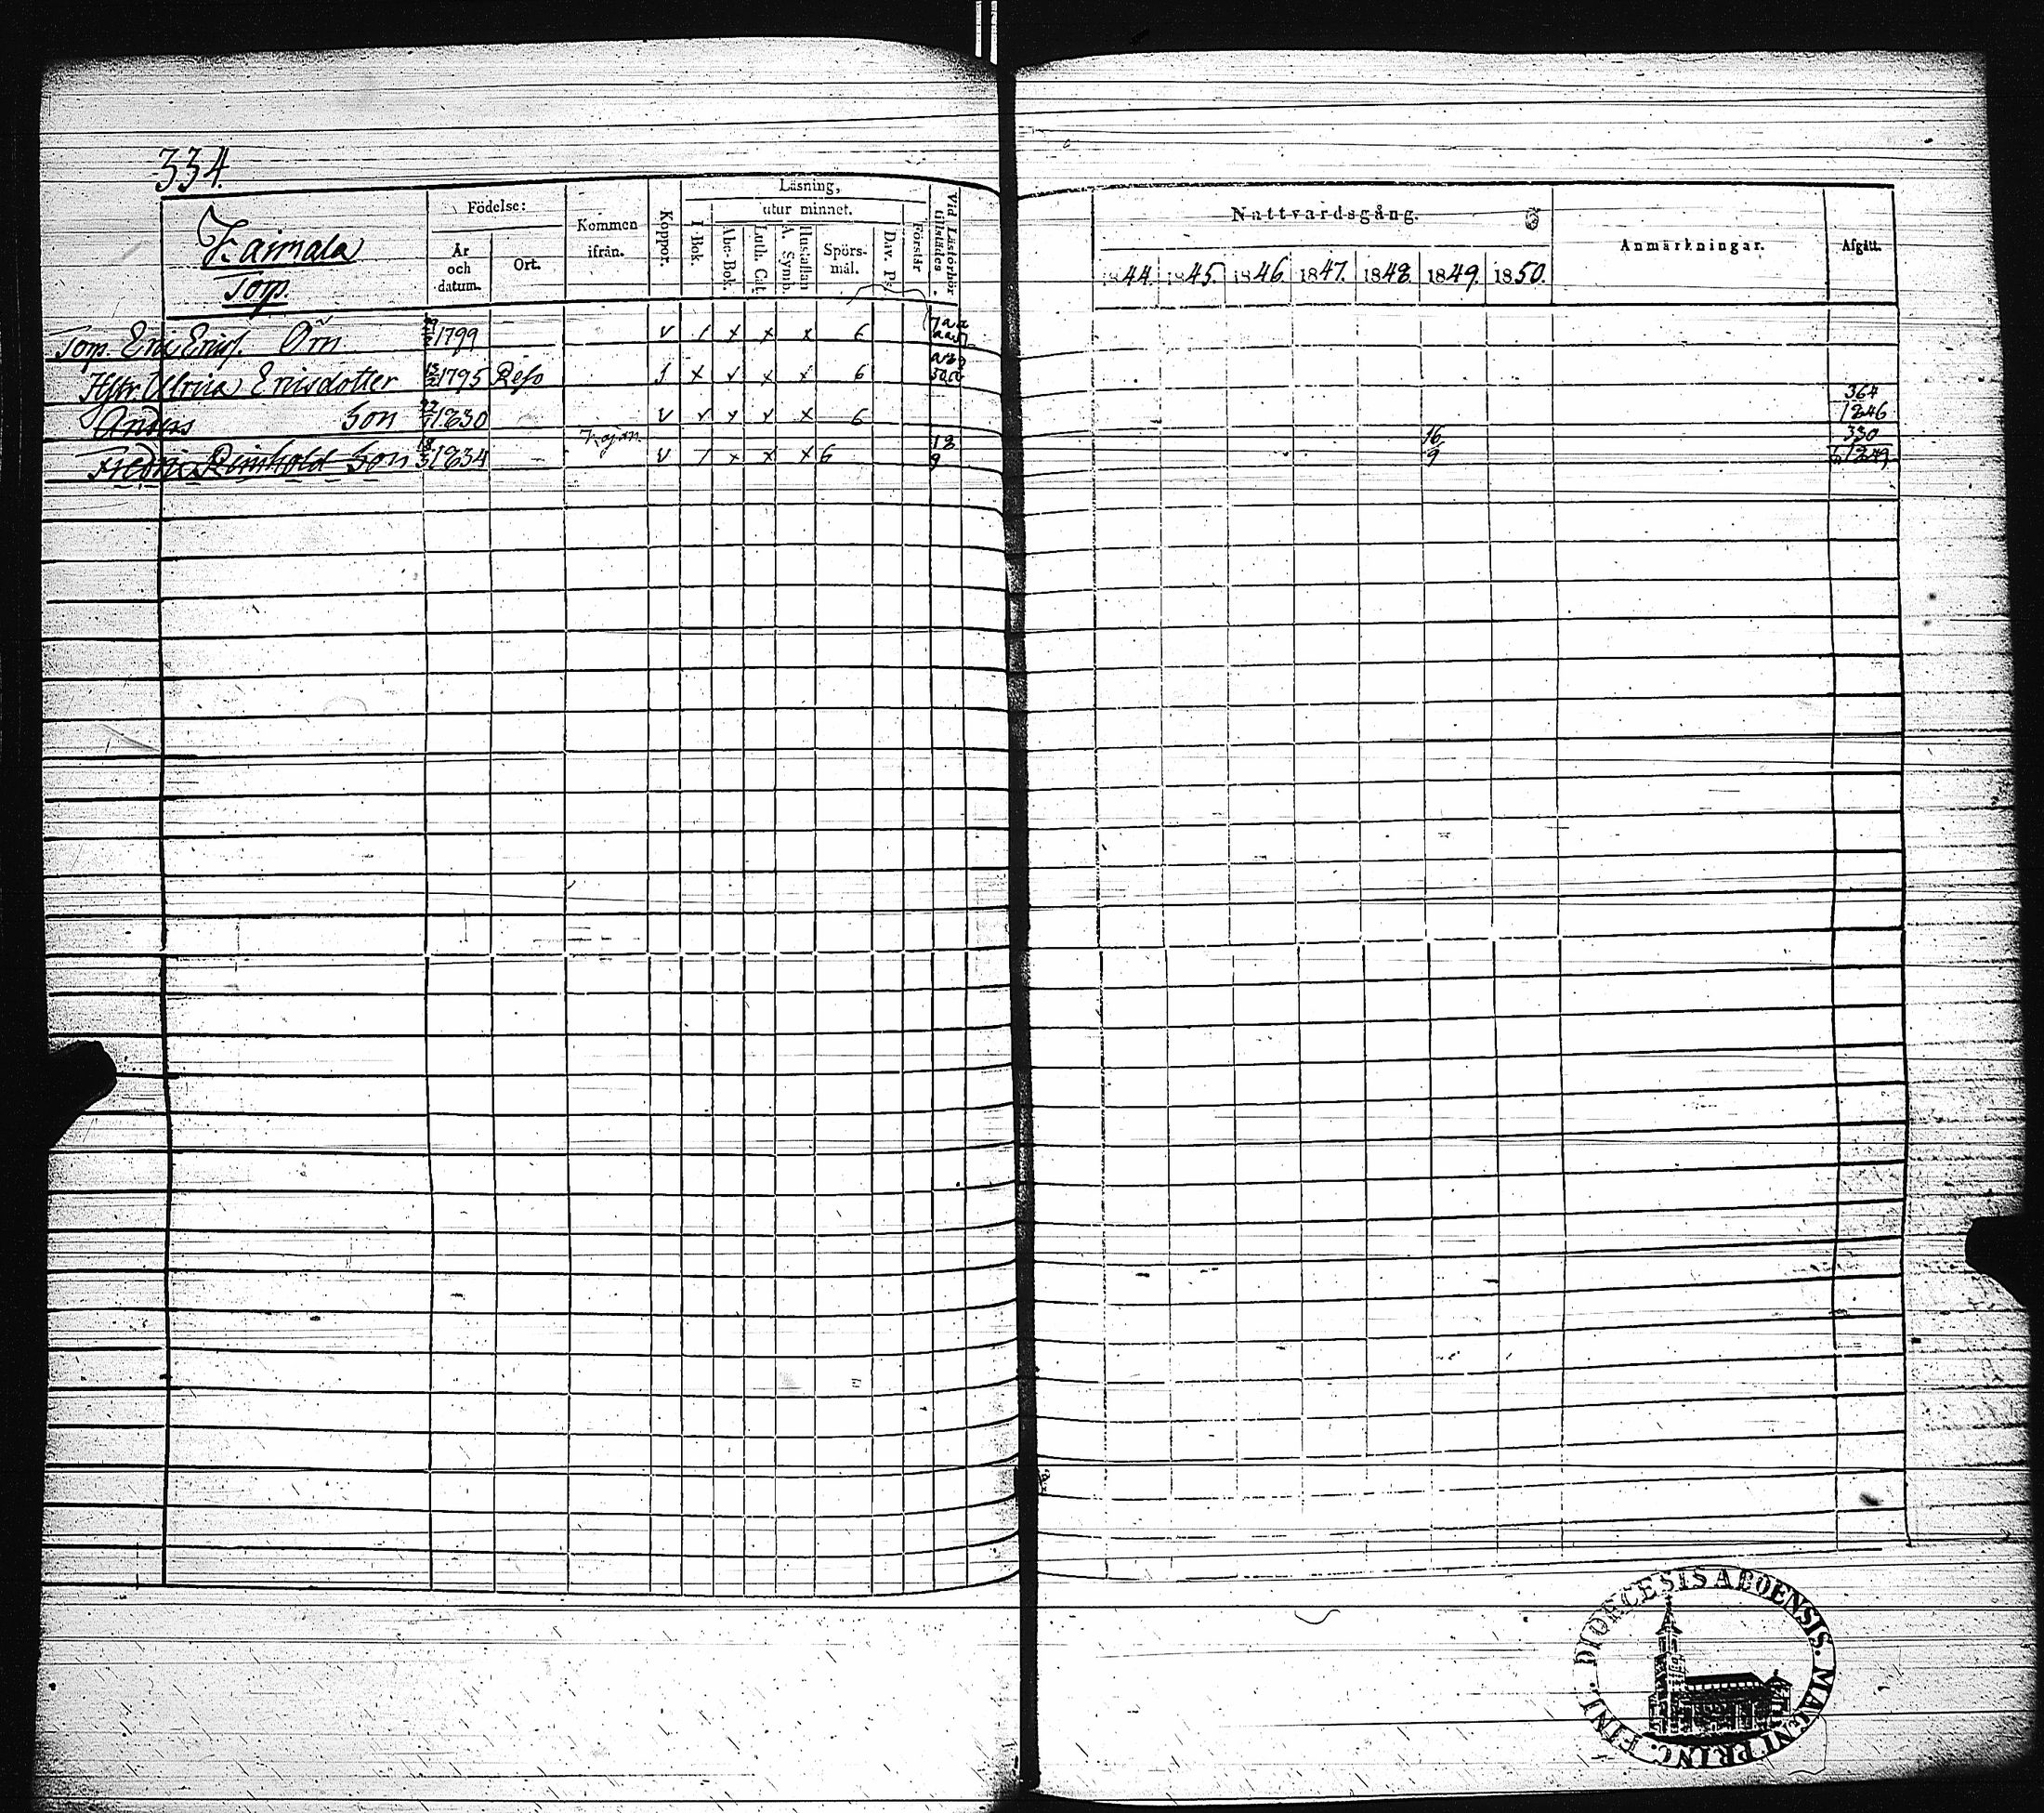 334.
Kaimala
Torp.
Födelse:
År och datum.
Ort.
Kommen ifrån.
Koppor.
Läsning,
I Bok.
utur minnet.
Abc-Bok.
Luth. Cat.
A. Symb.
Hustaflan
Spörsmål.
Dav. Ps.
Förstår
Vid Läsförhör tillstädes.
Nattvardsgång.
1844. 1845. 1846. 1847. 1848. 1849. 1850.
Anmärkningar.
Afgått.
Torp. Eric Ericss. Örn 1799 v / x x x 6
Hstr. Ulrica Ericsdotter 1795 Reso x x x x 6
Anders Son 1830 v x x x x 6 364 1846
Fredric Reinhold Son 18/3 1834 v / x x x 6 18 9 16 9 330 1849
DIOECESIS ABOENSIS. MAGNI PRINC. FINL.